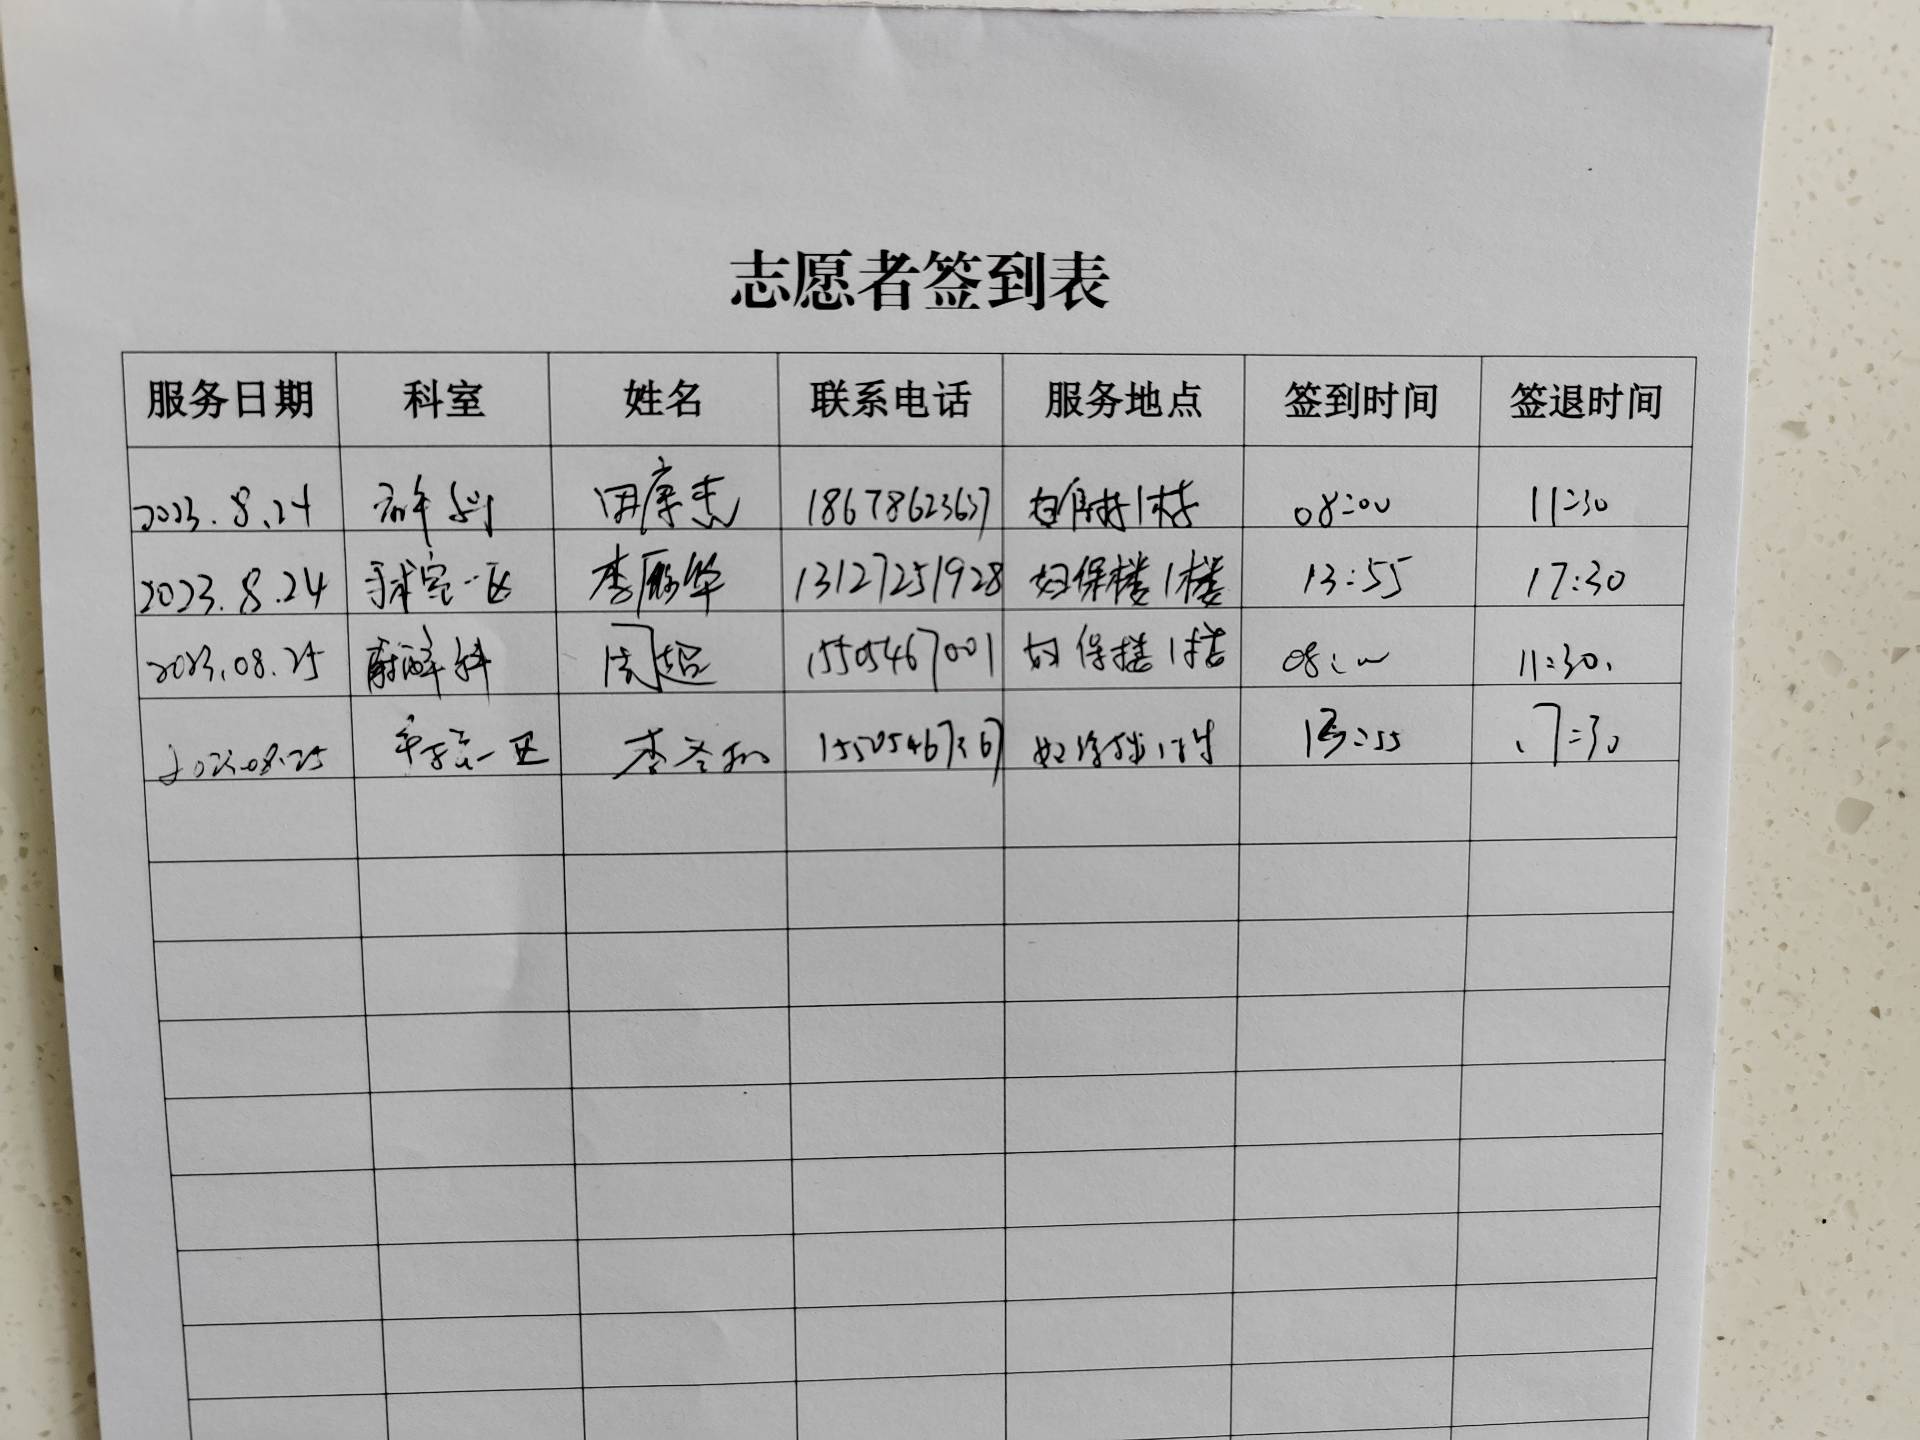 志愿者签到表
服务日期 科室 姓名 联系电话 服务地点 签到时间 签退时间
2023.8.24 田康志 18678623637 妇保楼1楼 08:00 11:30
2023.8.24 手术室一区 李丽华 13127251928 妇保楼1楼 13:55 17:30
2023.08.25 麻醉科 周超 15505467001 妇保楼1楼 08:00 11:30
2023.08.25 手术室一区 李冬 妇保楼1楼 13:55 17:30